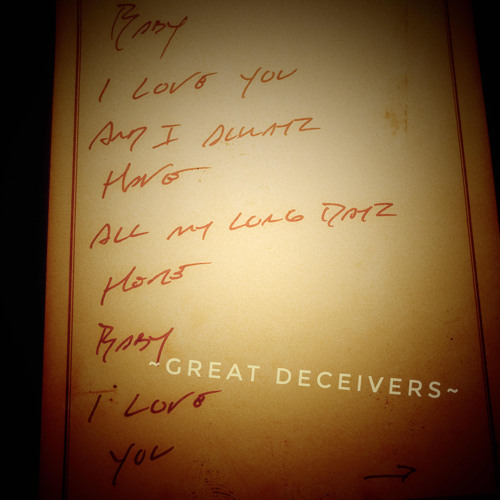 BABY
I LOVE YOU
AND I ALWAYZ
HAVE
ALL MY LONG DAYZ
HERE
BABY
~GREAT DECEIVERS~
I LOVE
YOU
→